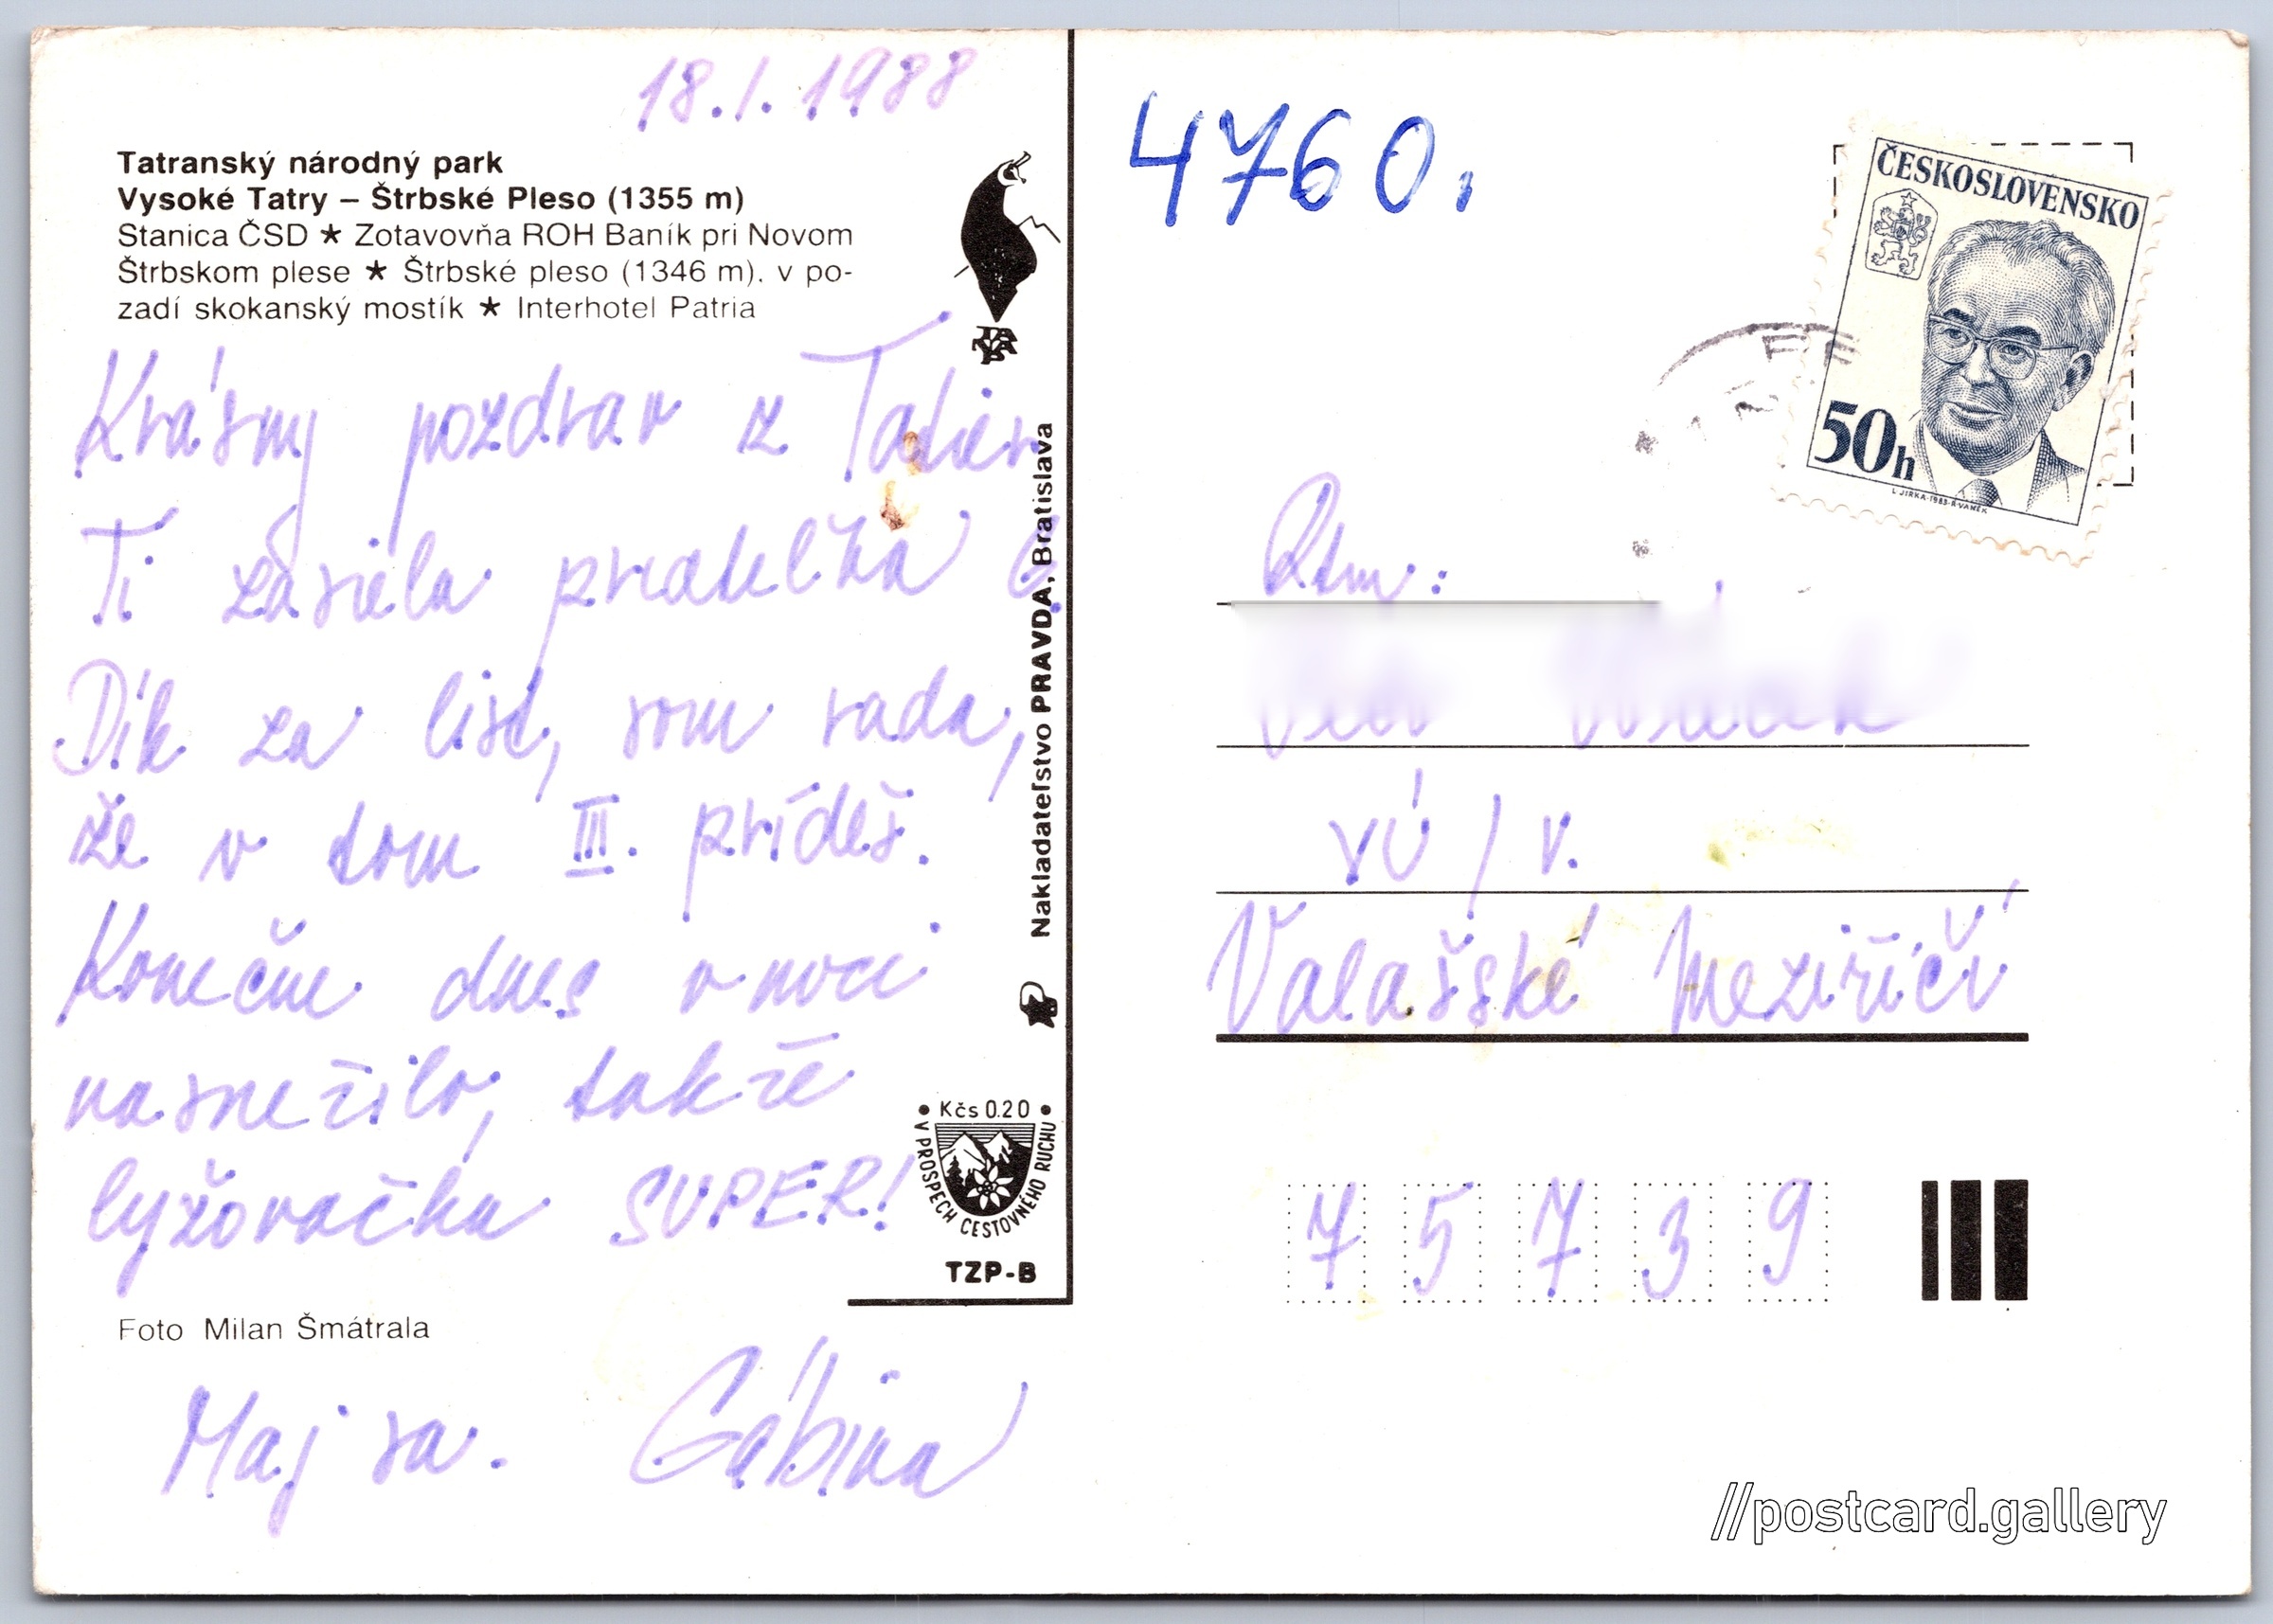 18.1.1988
Tatranský národný park
Vysoké Tatry – Štrbské Pleso (1355 m)
Stanica ČSD ★ Zotavovňa ROH Baník pri Novom
Štrbskom plese ★ Štrbské pleso (1346 m), v po-
zadí skokanský mostík ★ Interhotel Patria
TANAP
Krásny pozdrav z Tatier
Ti zasiela priateľka G.
Dík za list, som rada,
že v tom III. prídeš.
Konečne dnes v noci
nasnežilo, takže
lyžovačka SUPER!
Foto Milan Šmátrala
Maj sa. Gábina
Nakladateľstvo PRAVDA, Bratislava
Kčs 0.20
V PROSPECH CESTOVNÉHO RUCHU
TZP-B
4760.
ČESKOSLOVENSKO
50h
L. JIRKA-1983-R. VANĚK
VÚ / v.
Valašské Meziříčí
757 39
//postcard.gallery